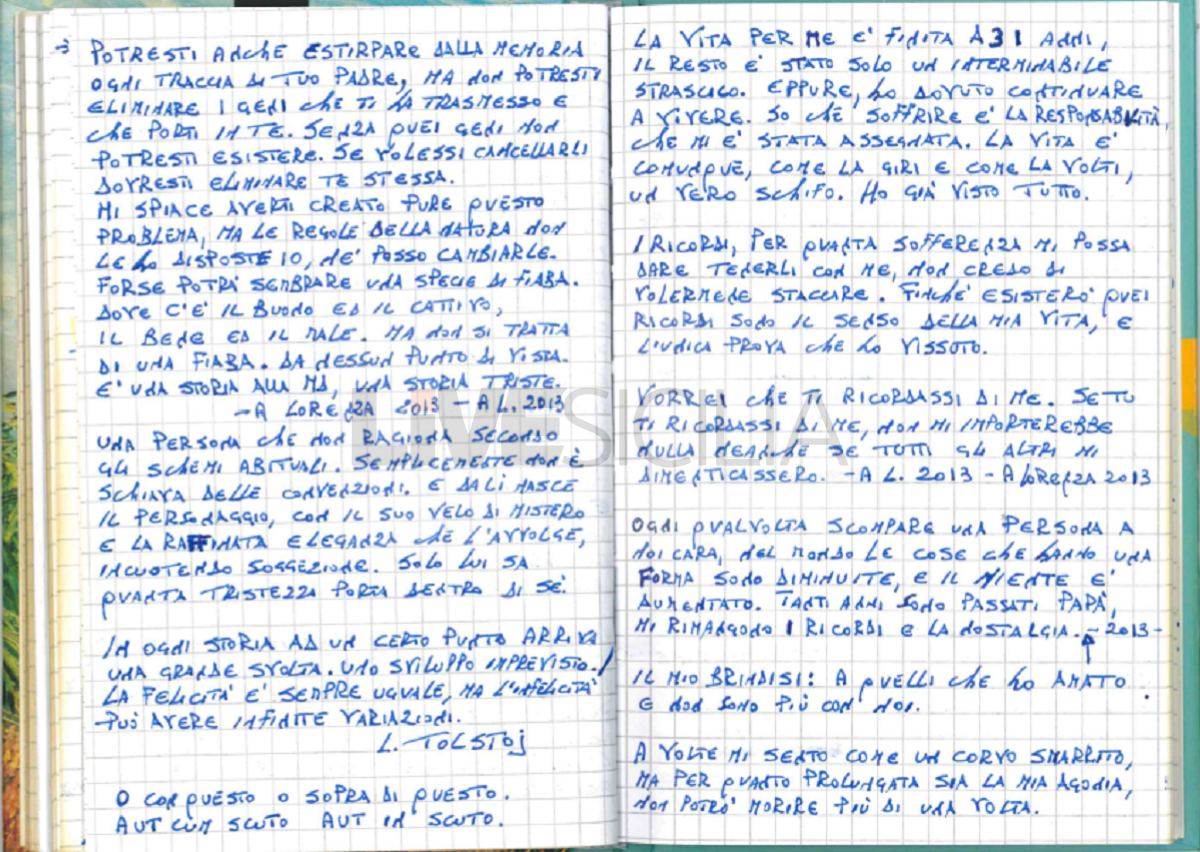 → POTRESTI ANCHE ESTIRPARE DALLA MEMORIA
OGNI TRACCIA DI TUO PADRE, MA NON POTRESTI
ELIMINARE I GENI CHE TI HA TRASMESSO E
CHE PORTI IN TE. SENZA QUEI GENI NON
POTRESTI ESISTERE. SE VOLESSI CANCELLARLI
DOVRESTI ELIMINARE TE STESSA.
MI SPIACE AVERTI CREATO PURE QUESTO
PROBLEMA, MA LE REGOLE DELLA NATURA NON
LE HO DISPOSTE IO, NE' POSSO CAMBIARLE.
FORSE POTRA' SEMBRARE UNA SPECIE DI FIABA.
DOVE C'E' IL BUONO ED IL CATTIVO,
IL BENE ED IL MALE. MA NON SI TRATTA
DI UNA FIABA. DA NESSUN PUNTO DI VISTA.
E' UNA STORIA ALLA MD, UNA STORIA TRISTE.
- A LORENZA 2013 - A L. 2013
UNA PERSONA CHE NON RAGIONA SECONDO
GLI SCHEMI ABITUALI. SEMPLICEMENTE NON È
SCHIAVA DELLE CONVENZIONI. E DA LI NASCE
IL PERSONAGGIO, CON IL SUO VELO DI MISTERO
E LA RAFFINATA ELEGANZA CHE L'AVVOLGE,
INCUOTENDO SOGGEZIONE. SOLO LUI SA
QUANTA TRISTEZZA PORTA DENTRO DI SÈ.
IN OGNI STORIA AD UN CERTO PUNTO ARRIVA
UNA GRANDE SVOLTA. UNO SVILUPPO IMPREVISTO./
LA FELICITA' E' SEMPRE UGUALE, MA L'INFELICITA'
PUÒ AVERE INFINITE VARIAZIONI.
L. TOLSTOJ
O CON QUESTO O SOPRA DI QUESTO.
AUT CUM SCUTO AUT IN SCUTO.
LA VITA PER ME E' FINITA A 31 ANNI,
IL RESTO E' STATO SOLO UN INTERMINABILE
STRASCICO. EPPURE, HO DOVUTO CONTINUARE
A VIVERE. SO CHE SOFFRIRE E' LA RESPONSABILITÀ,
CHE MI E' STATA ASSEGNATA. LA VITA E'
COMUNQUE, COME LA GIRI E COME LA VOLTI,
UN VERO SCHIFO. HO GIÀ VISTO TUTTO.
I RICORDI, PER QUANTA SOFFERENZA MI POSSA
DARE TENERLI CON ME, NON CREDO DI
VOLERMENE STACCARE. FINCHE' ESISTERO' QUEI
RICORDI SONO IL SENSO DELLA MIA VITA, E
L'UNICA PROVA CHE HO VISSUTO.
VORREI CHE TI RICORDASSI DI ME. SE TU
TI RICORDASSI DI ME, NON MI IMPORTEREBBE
NULLA NEANCHE SE TUTTI GLI ALTRI MI
DIMENTICASSERO. - A L. 2013 - A LORENZA 2013
OGNI QUALVOLTA SCOMPARE UNA PERSONA A
NOI CARA, NEL MONDO LE COSE CHE HANNO UNA
FORMA SONO DIMINUITE, E IL NIENTE E'
AUMENTATO. TANTI ANNI SONO PASSATI PAPÀ,
MI RIMANGONO I RICORDI E LA NOSTALGIA. - 2013 -
↑
IL MIO BRINDISI: A QUELLI CHE HO AMATO
E NON SONO PIÙ CON NOI.
A VOLTE MI SENTO COME UN CORVO SMARRITO,
MA PER QUANTO PROLUNGATA SIA LA MIA AGONIA,
NON POTRO' MORIRE PIÙ DI UNA VOLTA.
LIVESICILIA